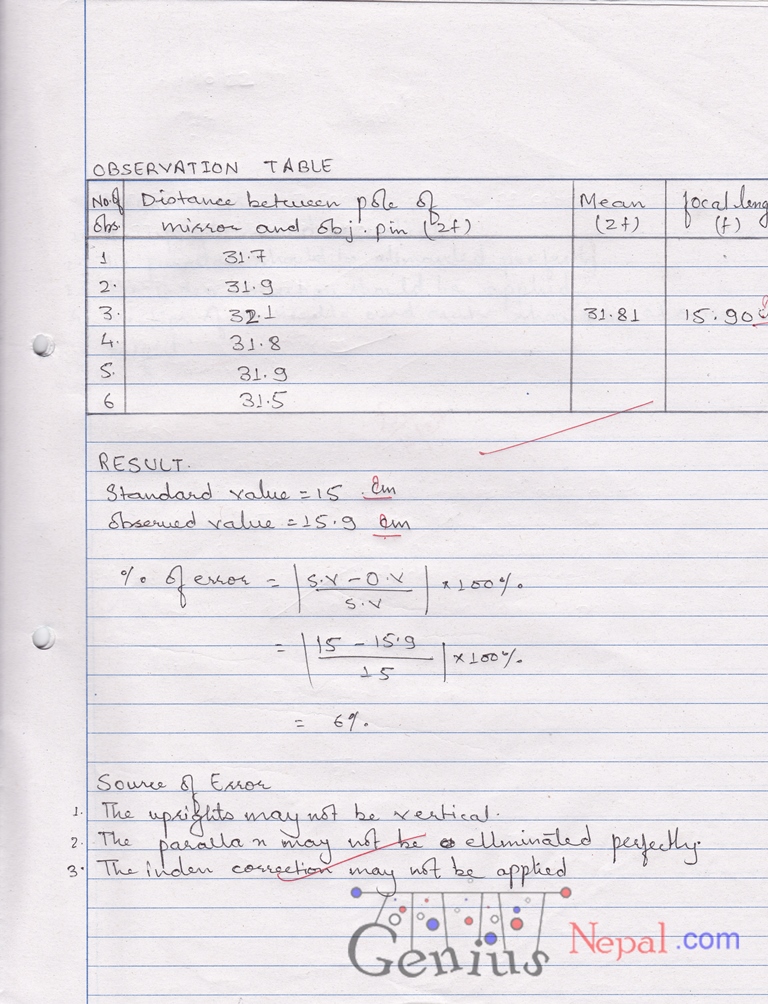 OBSERVATION TABLE
No.of Distance between pole of Mean focal leng
obs. mirror and obj. pin (2f) (2f) (f)
1 31.7
2. 31.9
3. 32.1 31.81 15.90
4. 31.8
5. 31.9
6 31.5
RESULT.
Standard value = 15 cm
observed value = 15.9 cm
% of error = | S.V - O.V / S.V | × 100%
= | 15 - 15.9 / 15 | × 100%
= 6%.
Source of Error
1. The uprights may not be vertical.
2. The paralla n may not be elluminated perfectly.
3. The inden correction may not be applied
Genius Nepal.com